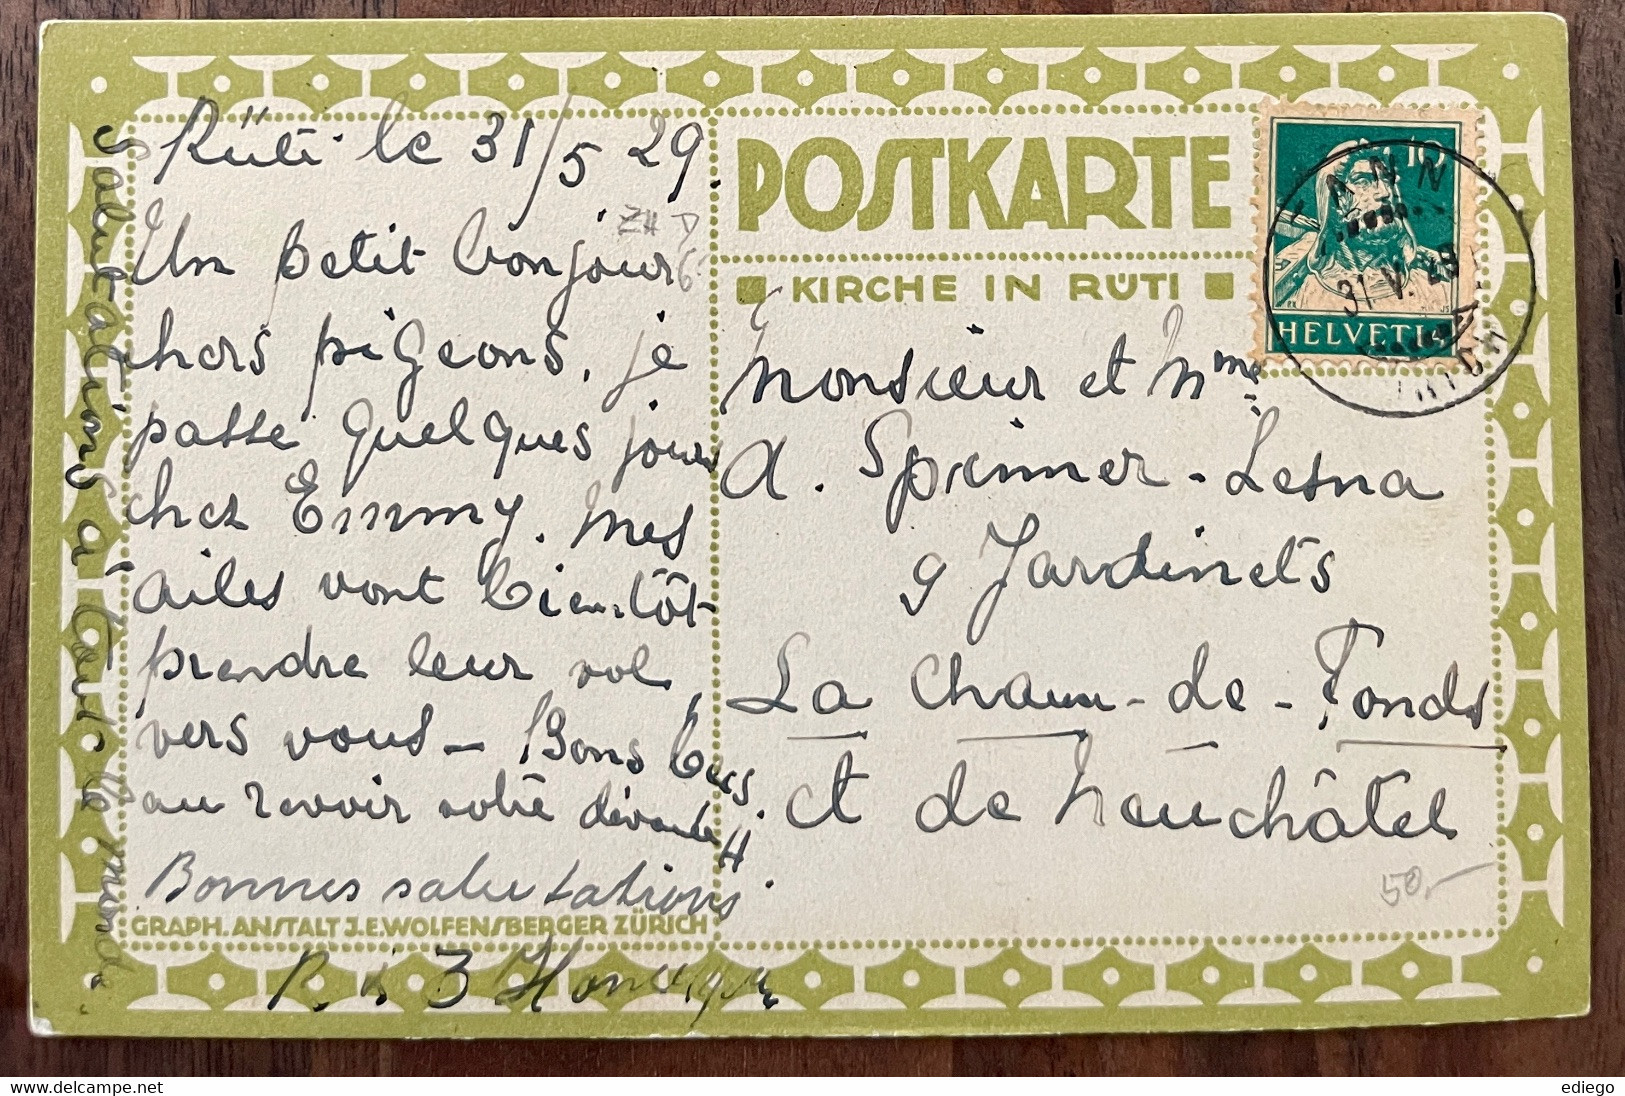 Rüti le 31/5 29.
Un petit bonjour
hors pigeons, je
passe quelques jours
chez Emmy. Mes
ailes vont bientôt
prendre leur vol
vers vous – Bons
au revoir votre dévouée
H
Bonnes salutations
Salutations à tout le monde.
ZH D
6
GRAPH. ANSTALT J.E. WOLFENSBERGER ZÜRICH
POSTKARTE
KIRCHE IN RÜTI
10
HELVETIA
TANN
31.V.29
Monsieur et Mme
A. Spinner-Lesna
9 Jardinets
La Chaux-de-Fonds
ct de Neuchâtel
50.-
ediego